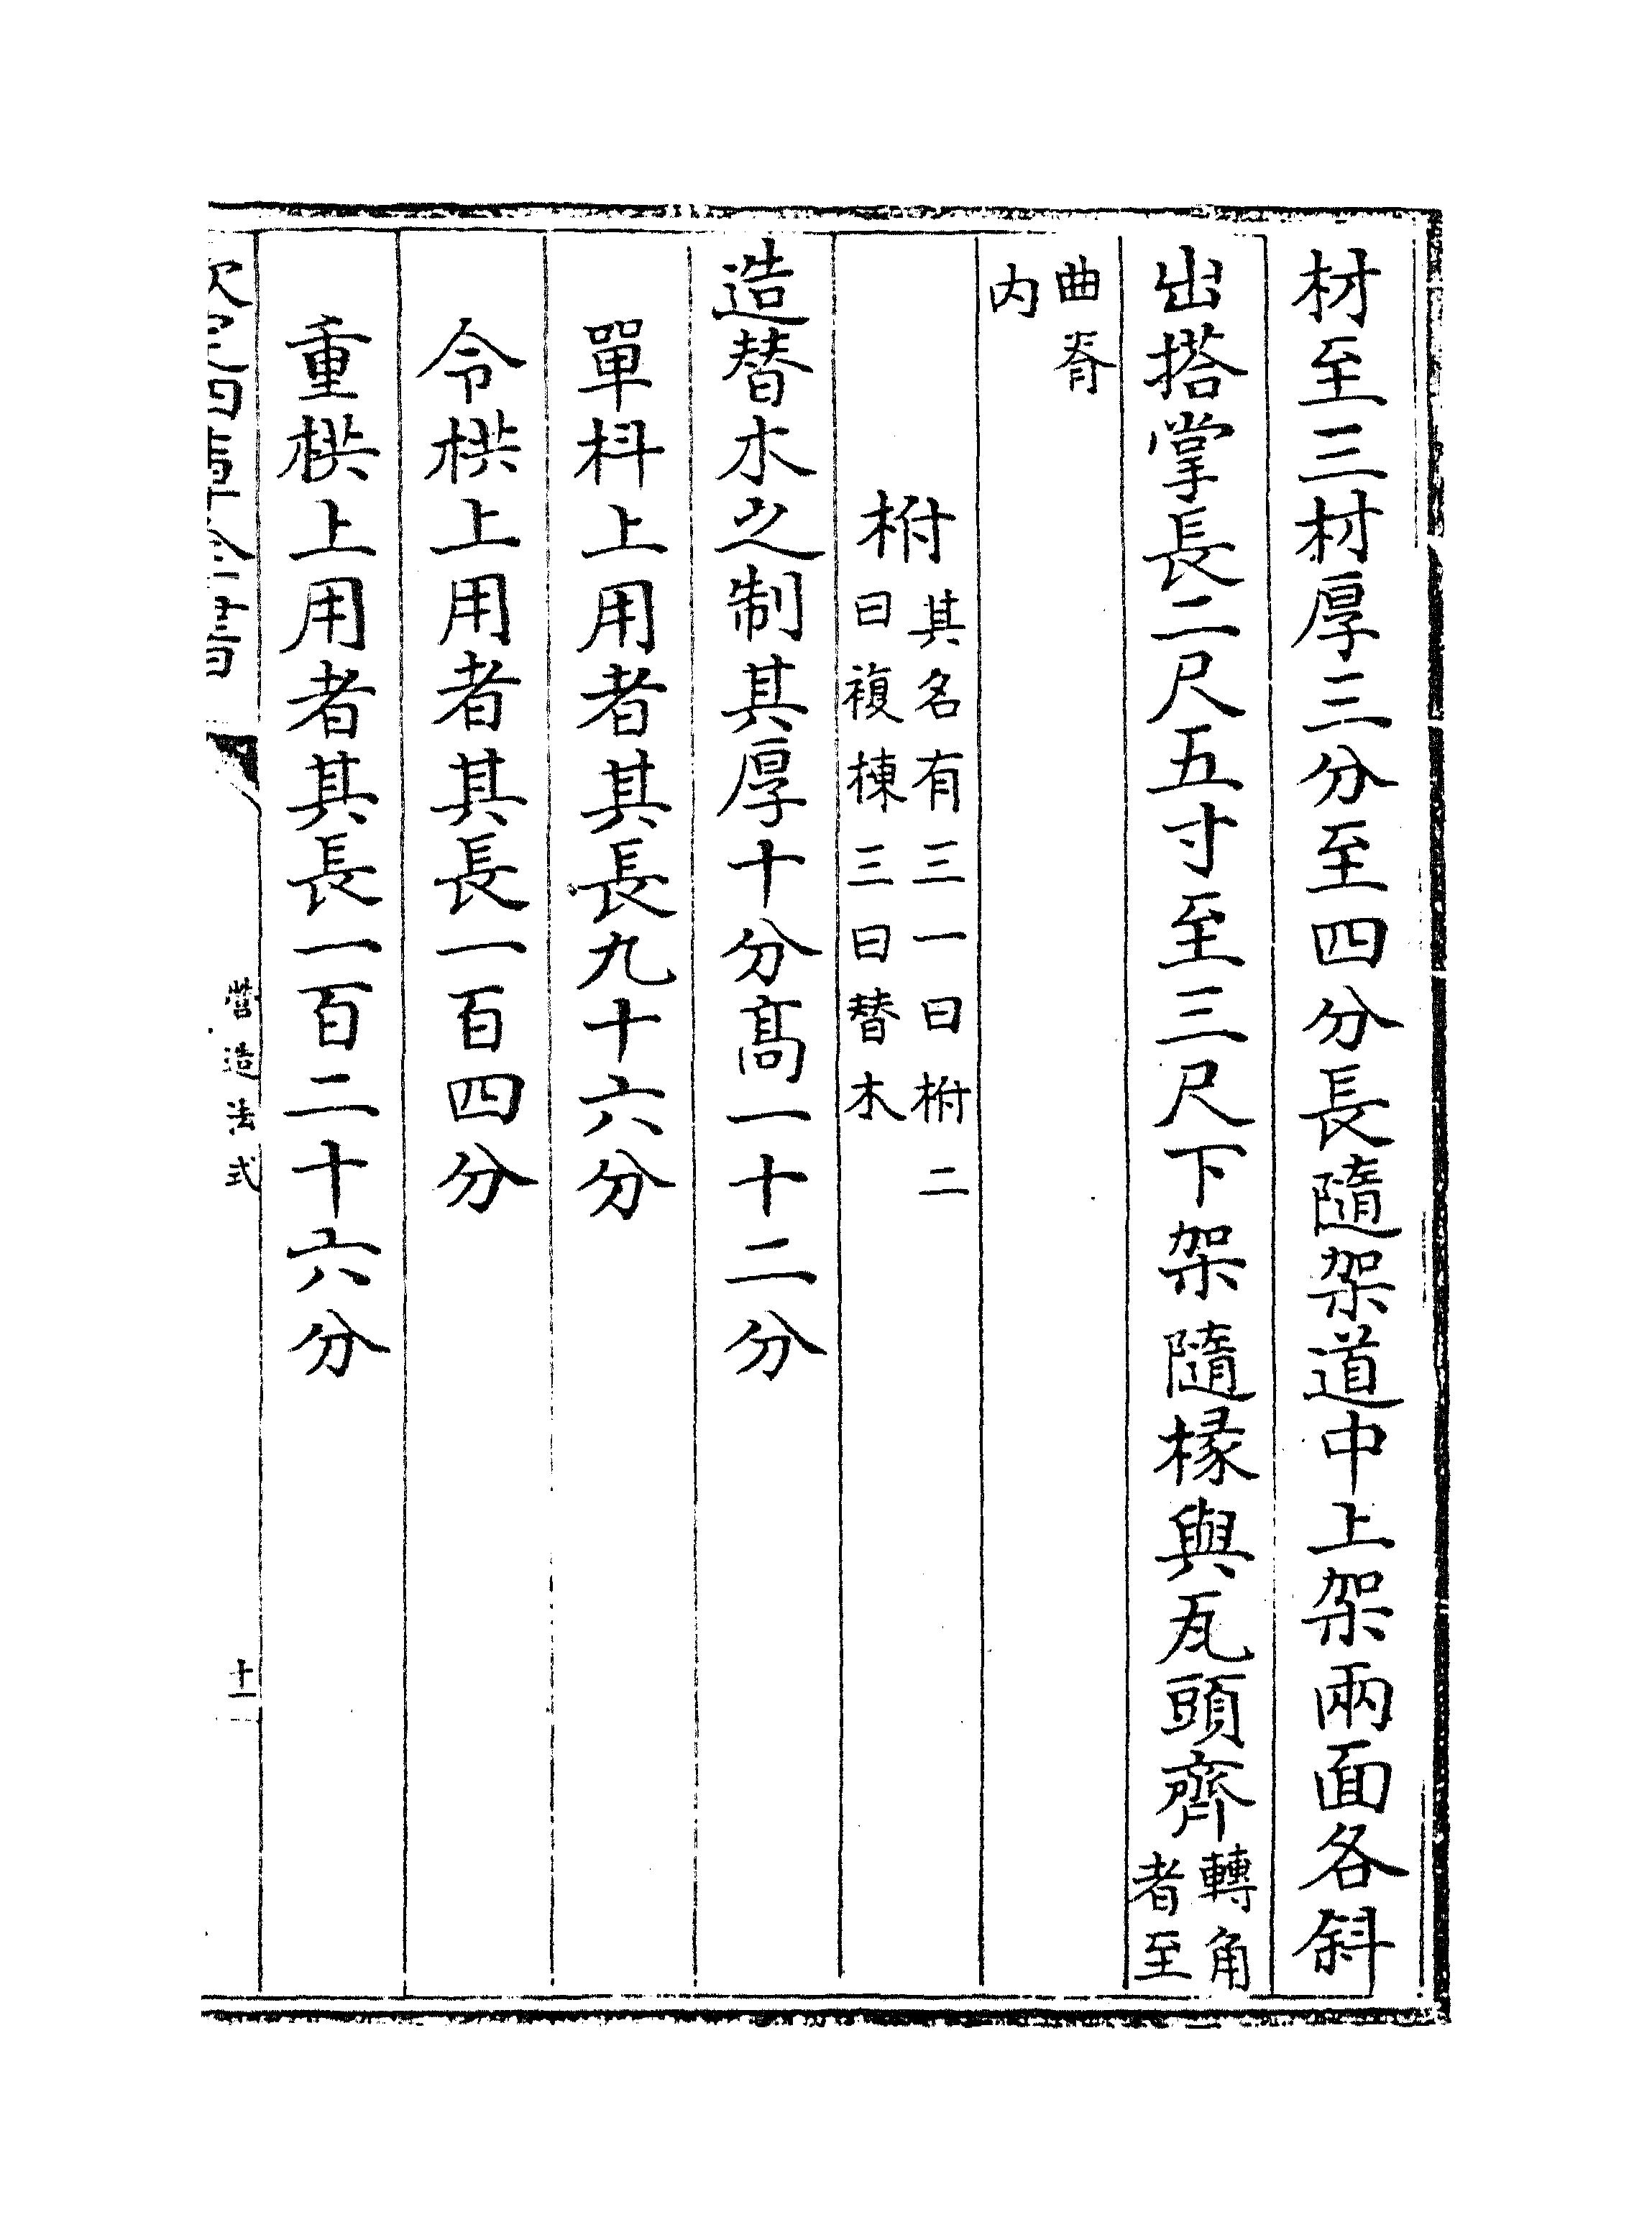 材至三材厚三分至四分長隨架道中上架兩面各斜
出搭掌長二尺五寸至三尺下架隨椽與瓦頭齊轉角者至
曲脊内
柎其名有三一曰柎二曰複棟三曰替木
造替木之制其厚十分髙一十二分
單枓上用者其長九十六分
令栱上用者其長一百四分
重栱上用者其長一百二十六分
欽定四庫全書
營造法式
十一